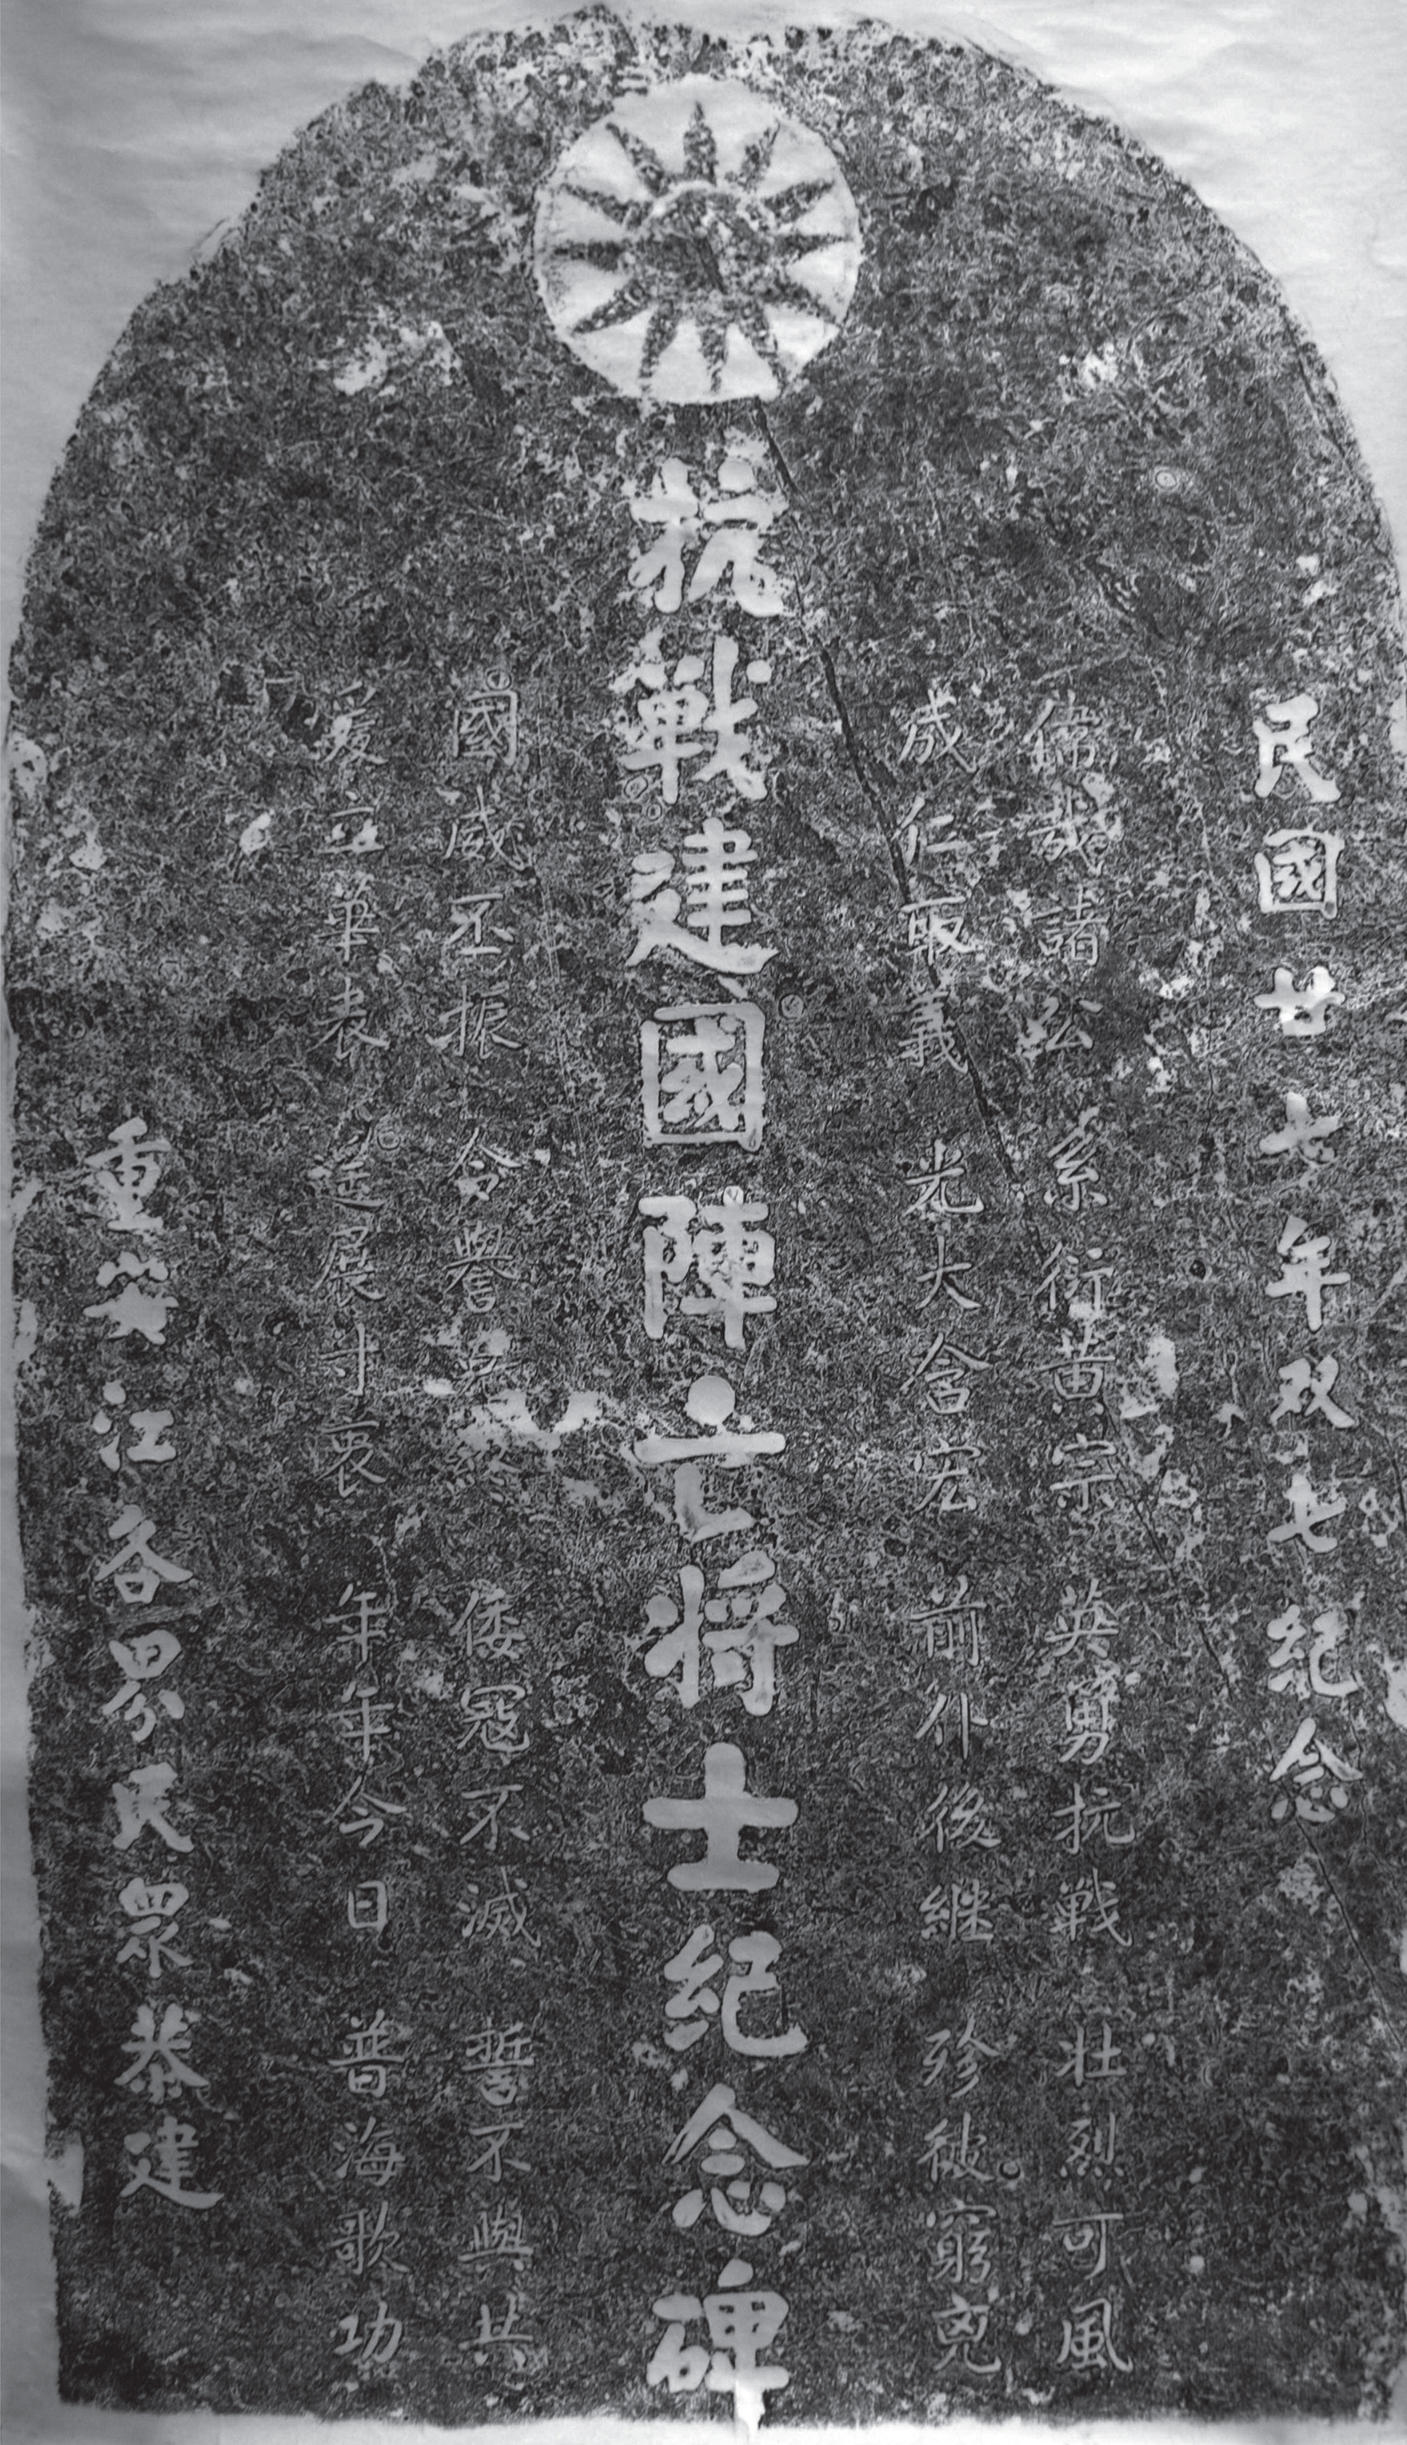 民國廿七年双七紀念
偉哉諸公　系衍黃宗　英勇抗戰　壯烈可風
成仁取義　光大含宏　前仆後繼　殄彼窮兇
抗戰建國陣亡將士紀念碑
國威丕振　令譽 終　倭寇不滅　誓不與共
爰立華表　 展寸衷　年年今日　普海歌功
重慶江各界民眾恭建